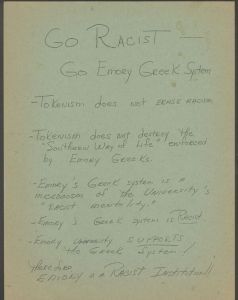 Go Racist —
Go Emory Greek System
- Tokenism does not erase racism
- Tokenism does not destroy the
"Southern Way of Life" enforced
by Emory Greeks.
- Emory's Greek system is a
mechanism of the University's
"racist mentality."
- Emory's Greek system is Racist
- Emory University SUPPORTS
the Greek System!
therefore
EMORY is a RACIST Institution!!